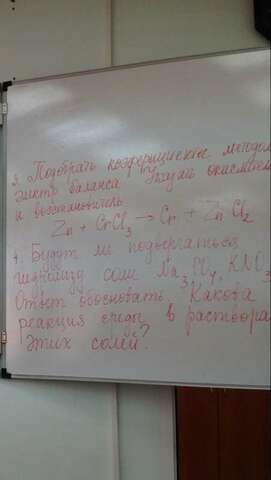 3. Подобрать коэффициенты методом
электр баланса Указать окислитель
и восстановитель
Zn + CrCl₃ → Cr + ZnCl₂
4. Будут ли подвергаться
гидролизу соли Na₃PO₄, KNO₃
Ответ обосновать. Какова
реакция среды в растворах
этих солей?